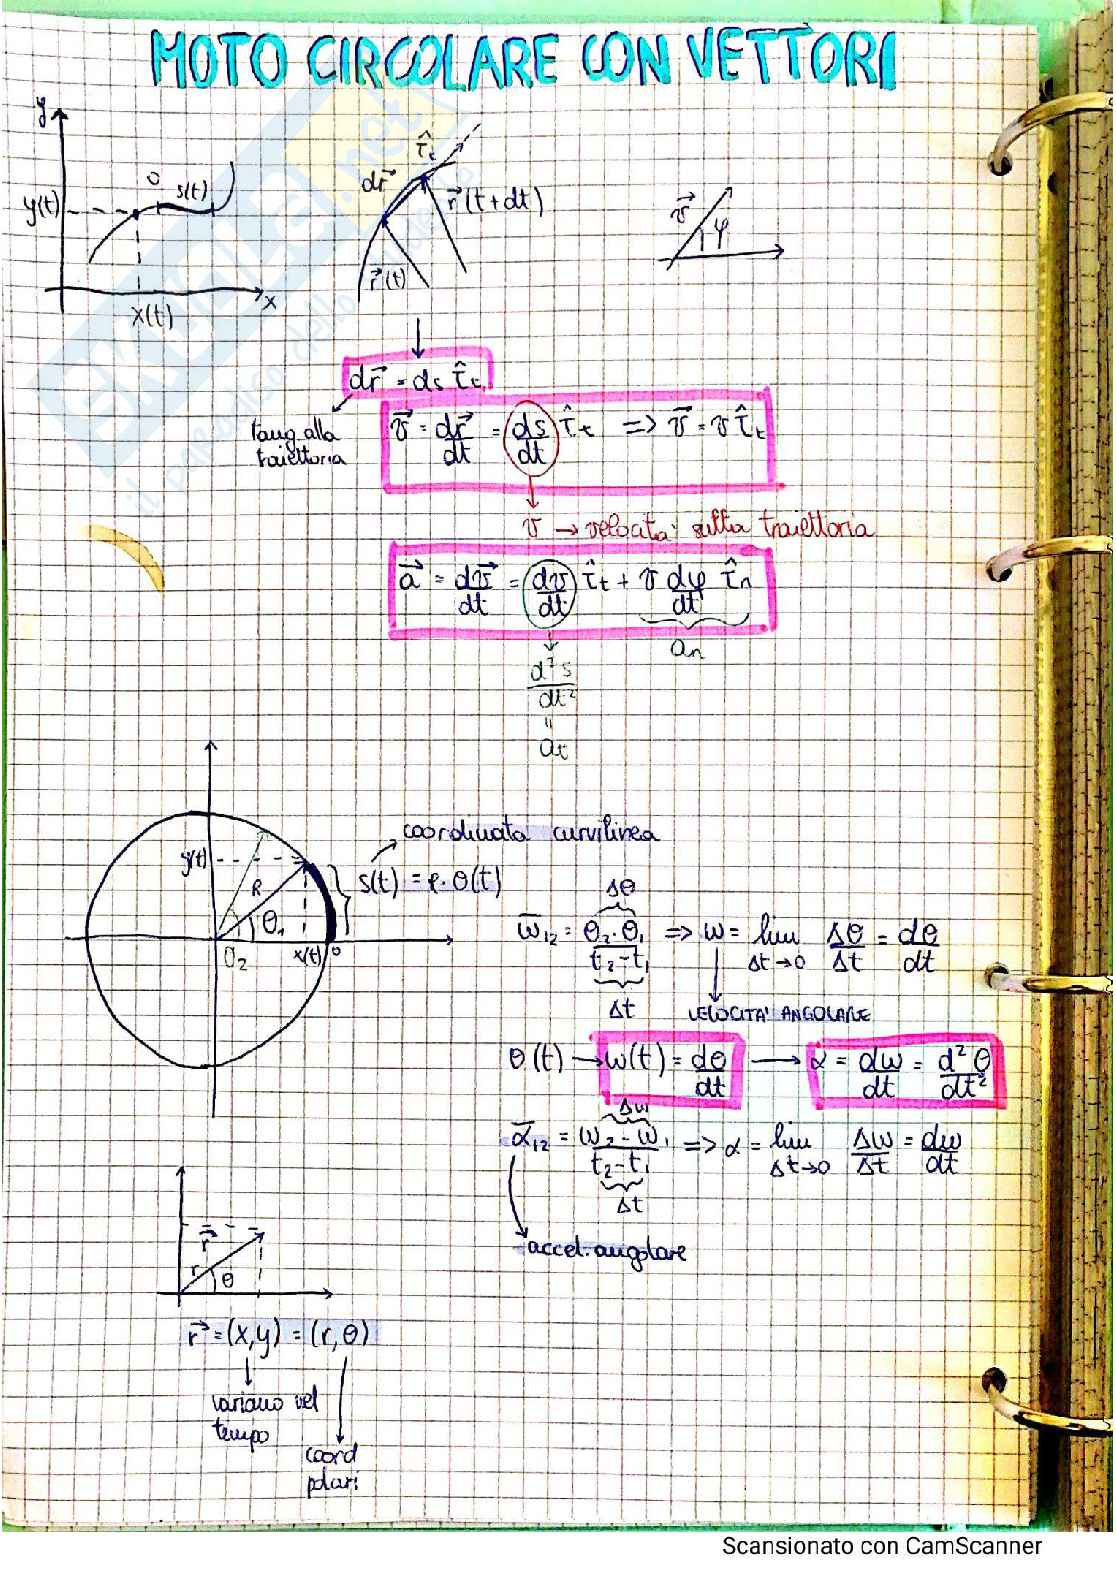 MOTO CIRCOLARE CON VETTORI
y
y(t)
0
s(t)
x(t)
x
dr⃗
τ̂ₜ
r⃗(t+dt)
r⃗(t)
v⃗
φ
dr⃗ = ds τ̂ₜ
tang. alla
traiettoria
v⃗ = dr⃗/dt = ds/dt τ̂ₜ => v⃗ = v τ̂ₜ
v → velocità sulla traiettoria
a⃗ = dv⃗/dt = dv/dt τ̂ₜ + v dφ/dt τ̂ₙ
aₙ
d²s/dt²
"
aₜ
coordinata curvilinea
y(t)
s(t) = r · θ(t)
R
θ₁
θ₂
x(t)
0
Δθ
ω̅₁₂ = θ₂-θ₁/t₂-t₁ => ω = lim Δt→0 Δθ/Δt = dθ/dt
Δt
VELOCITA' ANGOLARE
θ(t) → ω(t) = dθ/dt → α = dω/dt = d²θ/dt²
Δω
α̅₁₂ = ω₂-ω₁/t₂-t₁ => α = lim Δt→0 Δω/Δt = dω/dt
Δt
accel. angolare
r⃗
r
θ
r⃗ = (x,y) = (r,θ)
variano nel
tempo
coord
polari
SKUOLA.net
il paradiso dello
Scansionato con CamScanner